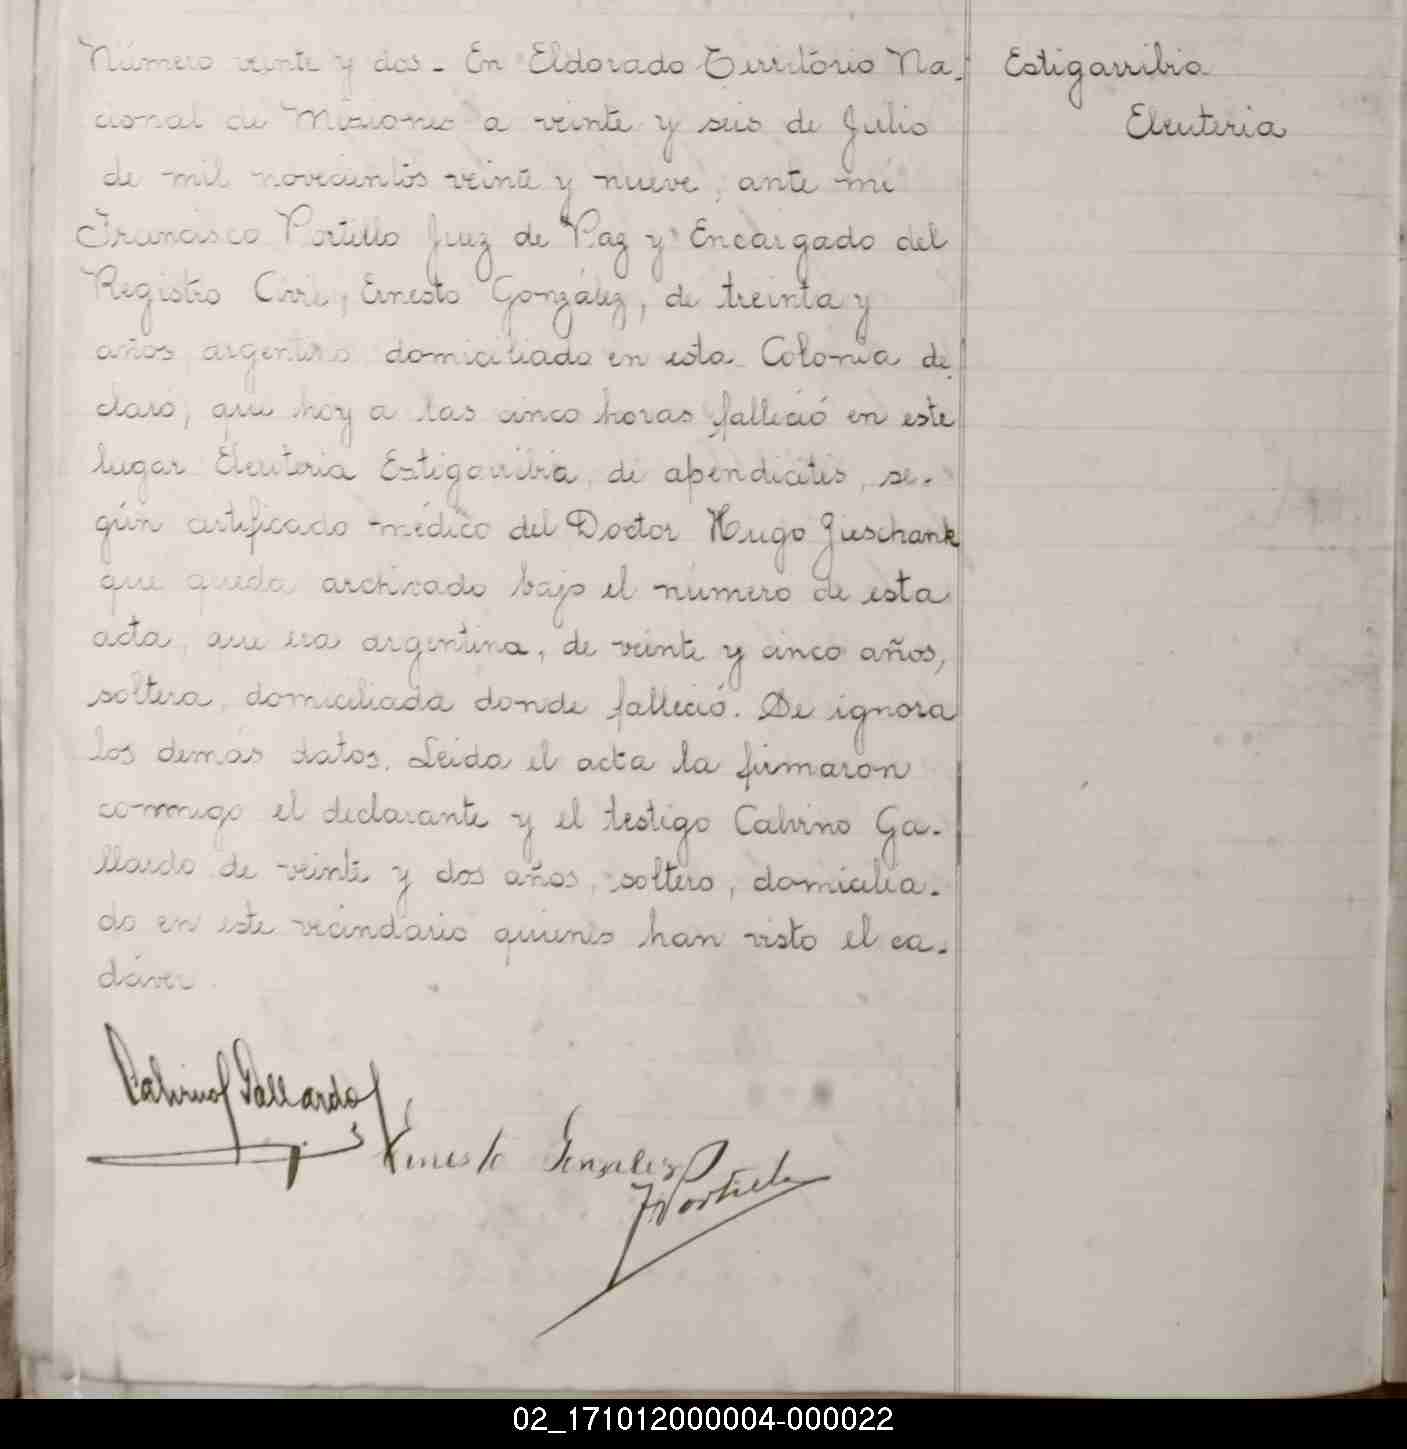 Número veinte y dos.- En Eldorado Território Na-
cional de Misiones a veinte y seis de Julio
de mil novecientos veinte y nueve, ante mi
Francisco Portillo Juez de Paz y Encargado del
Registro Civil, Ernesto González, de treinta y
años, argentino domiciliado en esta Colonia de
claró, que hoy a las cinco horas falleció en este
lugar Eleuteria Estigarribia, de apendicitis, se-
gún certificado médico del Doctor Hugo Jieschank
que queda archivado bajo el número de esta
acta, que era argentina, de veinte y cinco años,
soltera, domiciliada donde falleció. Se ignora
los demás datos. Leida el acta la firmaron
conmigo el declarante y el testigo Calvino Ga-
llardo de veinte y dos años, soltero, domicilia-
do en este vecindario quienes han visto el ca-
dáver.
Estigarribia
Eleuteria
Calvino Gallardo
Ernesto Gonzalez
F Portillo
02_171012000004-000022